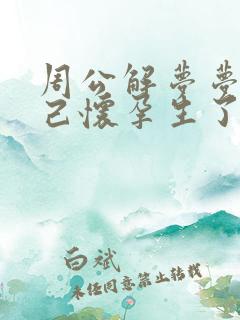 周公解梦梦
己怀孕生了
白斌
未经同意禁止转载